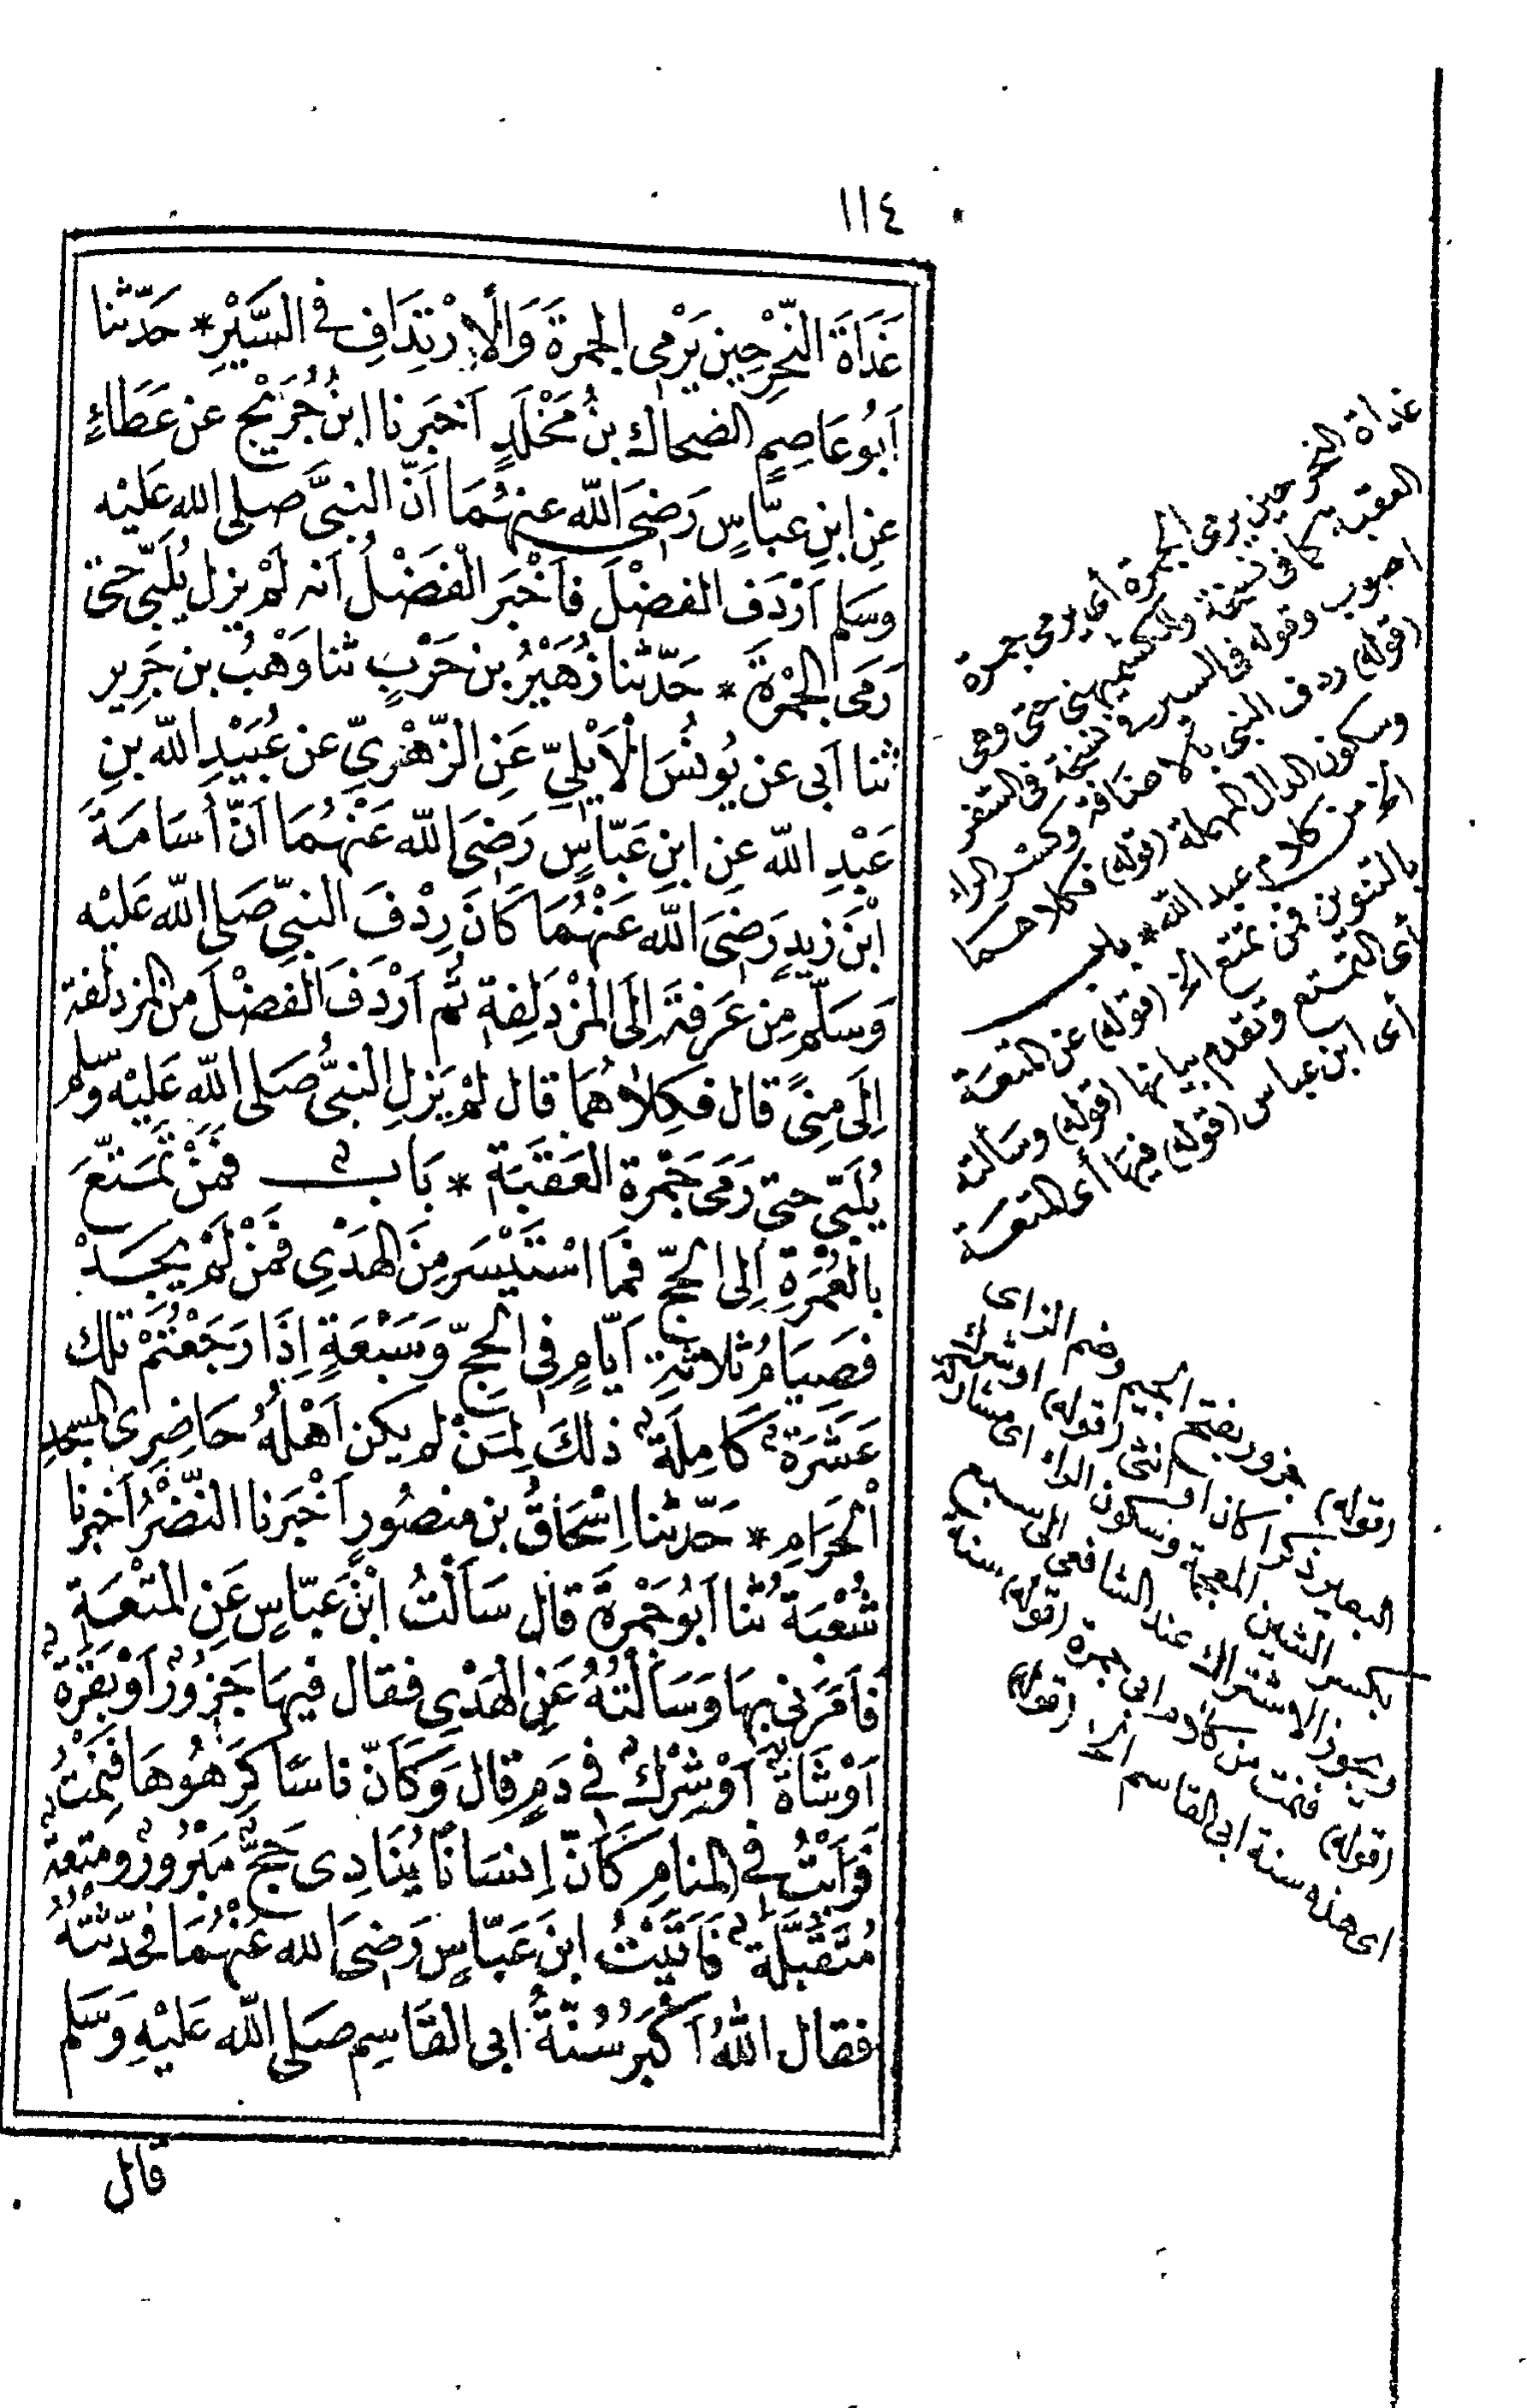 ١١٤
غَدَاةَ النَّحْرِ حِينَ يَرْمِي الجمرةَ وَالْاِرْتِدَافِ في السَّيْرِ * حَدَّثنا
اَبُو عَاصِمٍ الضحاك بنُ مَخْلَدٍ اَخبَرنا ابنُ جُرَيْجٍ عن عَطَاءٍ
عنِ ابنِ عبَّاسٍ رَضِيَ اللّٰه عنهُمَا اَنَّ النبيَّ صلى الله عَلَيْه
وسَلم اَرْدَف الفضْلَ فاَخْبَر الْفَضْلُ اَنه لَمْ يزل يُلَبِّي حتى
رَمَى الجمْرَةَ * حَدَّثنا زُهَيْرُ بن حَرْبٍ ثنا وَهْبُ بن جَرِير
ثنا اَبى عن يُونُسَ الْاَيْلِيِّ عَنِ الزُّهْرِيِّ عن عُبَيْدِ اللّٰه بنِ
عَبْدِ اللّٰه عنِ ابنِ عَبَّاسٍ رَضِيَ اللّٰه عَنْهُمَا اَنَّ اُسَامَةَ
ابْنَ زيدٍ رَضِيَ اللّٰه عَنْهُمَا كَانَ رِدْفَ النبيِّ صَلى اللّٰه عَلَيْه
وَسَلَّم مِن عَرَفَةَ اِلَى المُزْدَلِفَةِ ثُم اَرْدَفَ الفَضْلَ من المُزدلفة
اِلَى مِنًى قال فكِلاَهُمَا قال لَمْ يَزلِ النبيُّ صَلى اللّٰه عَلَيْه وسَلم
يُلَبّي حتى رَمَى جَمْرةَ العَقَبَةِ * بَابٌ فَمَنْ تَمَتَّعَ
بالْعُمْرَةِ اِلى الحَجِّ فَمَا اسْتَيْسَر مِنَ الهَدْيِ فَمَنْ لَمْ يَجِدْ
فصِيَامُ ثلاثَةِ اَيَّامٍ فِي الحَجّ وَسَبْعَةٍ اِذَا رَجَعْتُمْ تلك
عَشَرَةٌ كَامِلَةٌ ذلكَ لِمَنْ لم يكن اَهْلُهُ حَاضِرِى المسجدِ
الْحَرَامِ * حَدّثنا اِسْحَاقُ بن منصُورٍ اَخْبَرنا النَّضْرُ اَخبرنا
شُعْبَةُ ثنا اَبُو جَمْرَةَ قال سَاَلْتُ ابْنَ عَبّاسٍ عَنِ المُتْعَةِ
فَاَمَرَنِى بهَا وَسَاَلْتُهُ عَنِ الهَدْيِ فقال فيهَا جَزُورٌ اَوْ بَقَرَةٌ
اَوْ شَاةٌ اَوْ شِرْكٌ فِي دَمٍ قال وَكَاَنَّ نَاسًا كَرِهُوهَا فَنِمْتُ
فَرَاَيْتُ فِي المنامِ كَاَنَّ اِنسَانًا يُنَادِى حَجٌّ مَبْرُورٌ ومتعةٌ
مُتَقَبَّلَةٌ فَاَتَيْتُ ابنَ عَبّاسٍ رَضِيَ الله عَنْهُمَا فَحَدّثْتُهُ
فقال اللّٰهُ اَكْبَرُ سُنّةُ اَبى القَاسِمِ صَلى اللّٰه عَلَيْهِ وَسَلم
قال
غداة النحر حين يرمى الجمرة أى يرمى جمرة
العقبة كما فى نسخة وللكشميهنى حتى وهى
اصوب وقوله فى السير فى نسخة فى السفر
(قوله) ردف النبى بالاضافة وكسر الراء
وسكون الدال المهملة (قوله) فكلاهما
الخ من كلام عبد الله * باب
بالتنوين فمن تمتع الخ (قوله) عن المتعة
أى التمتع وتقدم بيانها (قوله) وسألته
أى ابن عباس (قوله) فيها أى المتعة
(قوله) جزور بفتح الجيم وضم الزاى
البعير ذكرا كان او انثى (قوله) او شرك
بكسر الشين المعجمة وسكون الراء اى مشاركة
ويجوز الاشتراك عند الشافعى الى سبع
(قوله) فنمت من كلام ابى جمرة (قوله) سنة
اى هذه سنة ابى القاسم الخ (قوله)